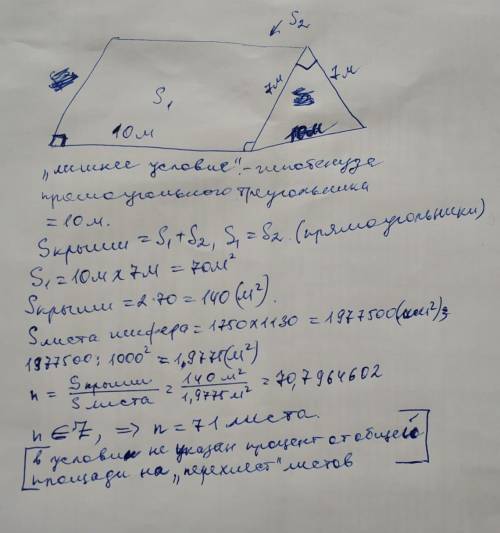 S₂
S₁
7м
7м
10м
10м
"лишнее условие" - гипотенуза
прямоугольного треугольника
= 10м.
Sкрыши = S₁ + S₂, S₁ = S₂. (прямоугольники)
S₁ = 10м x 7м = 70м²
Sкрыши = 2·70 = 140 (м²).
Sлиста шифера = 1750x1130 = 1977500 (мм²);
1977500 : 1000² = 1,9775 (м²)
n = Sкрыши / Sлиста = 140 м² / 1,9775 м² = 70,7964602
n ∈ Z, => n = 71 листа.
в условии не указан процент от общей
площади на "перехлест" листов